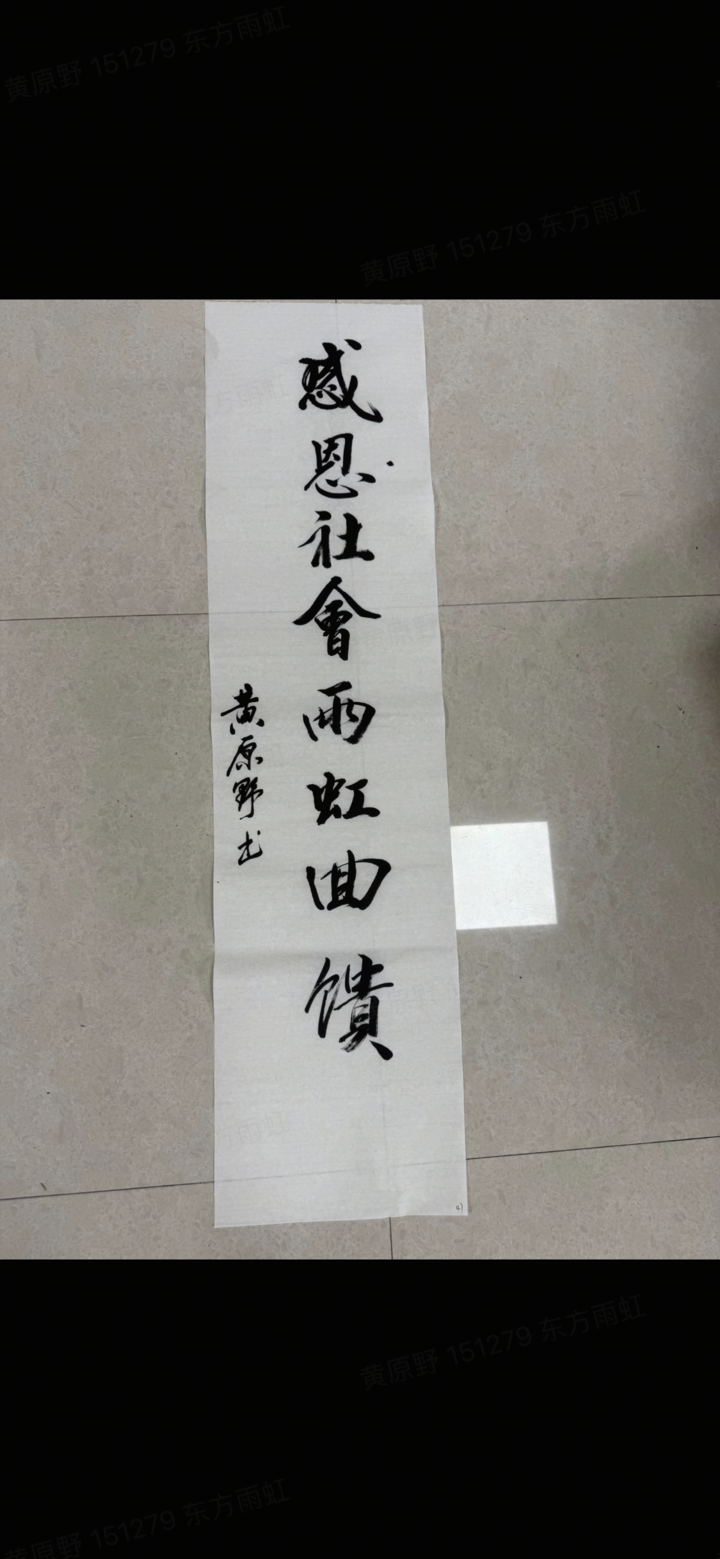 黄原野 151279 东方雨虹
黄原野 151279 东方雨虹
感恩社會雨虹回馈
黄原野书
黄原野 151279 东方雨虹
黄原野 151279 东方雨虹